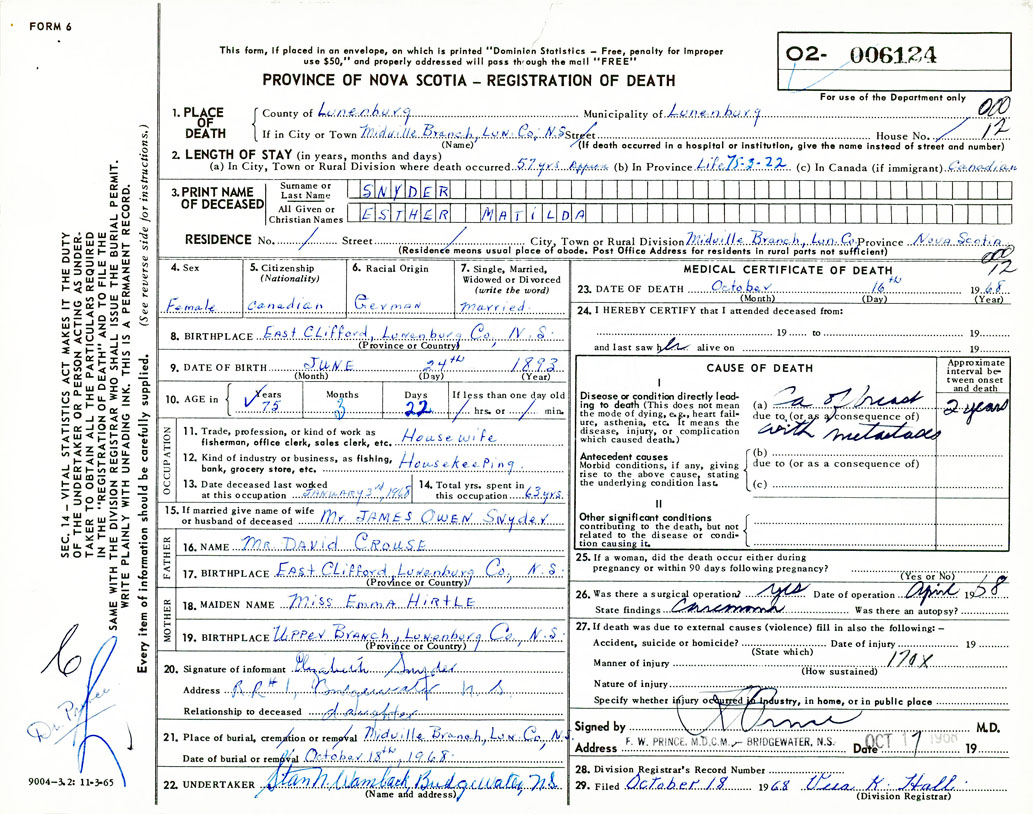 FORM 6
This form, if placed in an envelope, on which is printed "Dominion Statistics — Free, penalty for improper
use $50," and properly addressed will pass through the mail "FREE"
PROVINCE OF NOVA SCOTIA – REGISTRATION OF DEATH
O2- 006124
For use of the Department only
000
12
1. PLACE OF DEATH
County of Lunenburg Municipality of Lunenburg
If in City or Town Midville Branch, Lun. Co, N.S Street / House No. /
(Name) (If death occurred in a hospital or institution, give the name instead of street and number)
2. LENGTH OF STAY (in years, months and days)
(a) In City, Town or Rural Division where death occurred 57 yrs. Approx (b) In Province Life 75-3-22 (c) In Canada (if immigrant) Canadian
3. PRINT NAME OF DECEASED
Surname or Last Name SNYDER
All Given or Christian Names ESTHER MATILDA
RESIDENCE No. / Street / City, Town or Rural Division Midville Branch, Lun. Co, Province Nova Scotia
(Residence means usual place of abode. Post Office Address for residents in rural parts not sufficient)
000
12
4. Sex
Female
5. Citizenship
(Nationality)
Canadian
6. Racial Origin
German
7. Single, Married,
Widowed or Divorced
(write the word)
Married
8. BIRTHPLACE East Clifford, Lunenburg Co, N.S.
(Province or Country)
9. DATE OF BIRTH JUNE 24th 1893
(Month) (Day) (Year)
10. AGE in
Years
75
Months
3
Days
22
If less than one day old
/ hrs. or / min.
OCCUPATION
11. Trade, profession, or kind of work as
fisherman, office clerk, sales clerk, etc. Housewife
12. Kind of industry or business, as fishing,
bank, grocery store, etc. Housekeeping
13. Date deceased last worked
at this occupation January 3rd, 1968
14. Total yrs. spent in
this occupation 63 yrs.
15. If married give name of wife
or husband of deceased Mr. JAMES OWEN Snyder
FATHER
16. NAME MR. DAVID CROUSE
17. BIRTHPLACE East Clifford, Lunenburg Co, N.S.
(Province or Country)
MOTHER
18. MAIDEN NAME Miss Emma HIRTLE
19. BIRTHPLACE Upper Branch, Lunenburg Co, N.S.
(Province or Country)
20. Signature of informant Elizabeth Snyder
Address R.R #1, Bridgewater N.S.
Relationship to deceased daughter
21. Place of burial, cremation or removal Midville Branch, Lun Co, N.S.
Date of burial or removal October 18th, 1968.
22. UNDERTAKER Stan N. Wamback, Bridgewater, N.S.
(Name and address)
MEDICAL CERTIFICATE OF DEATH
23. DATE OF DEATH October 16th 1968
(Month) (Day) (Year)
24. I HEREBY CERTIFY that I attended deceased from:
19 to 19
and last saw her alive on 19
CAUSE OF DEATH
Approximate
interval be-
tween onset
and death
I
Disease or condition directly lead-
ing to death (This does not mean
the mode of dying, e.g., heart fail-
ure, asthenia, etc. It means the
disease, injury, or complication
which caused death.)
(a) Ca of breast
due to (or as a consequence of)
with metastases
2 years
Antecedent causes
Morbid conditions, if any, giving
rise to the above cause, stating
the underlying condition last.
(b)
due to (or as a consequence of)
(c)
II
Other significant conditions
contributing to the death, but not
related to the disease or condi-
tion causing it.
25. If a woman, did the death occur either during
pregnancy or within 90 days following pregnancy?
(Yes or No)
26. Was there a surgical operation? yes Date of operation April 1958
State findings Carcinoma Was there an autopsy?
27. If death was due to external causes (violence) fill in also the following: –
Accident, suicide or homicide? Date of injury 19
(State which)
Manner of injury 170X
(How sustained)
Nature of injury
Specify whether injury occurred in industry, in home, or in public place
Signed by F Prince M.D.
Address F. W. PRINCE. M.D.C.M. – BRIDGEWATER, N.S. Date OCT 17 1968 19
28. Division Registrar's Record Number
29. Filed October 18 1968 K. Hall
(Division Registrar)
SEC. 14 – VITAL STATISTICS ACT MAKES IT THE DUTY
OF THE UNDERTAKER OR PERSON ACTING AS UNDER-
TAKER TO OBTAIN ALL THE PARTICULARS REQUIRED
IN THE "REGISTRATION OF DEATH" AND TO FILE THE
SAME WITH THE DIVISION REGISTRAR WHO SHALL ISSUE THE BURIAL PERMIT.
WRITE PLAINLY WITH UNFADING INK. THIS IS A PERMANENT RECORD.
Every item of information should be carefully supplied. (See reverse side for instructions.)
Dr Prince
9004-3.2: 11-3-65